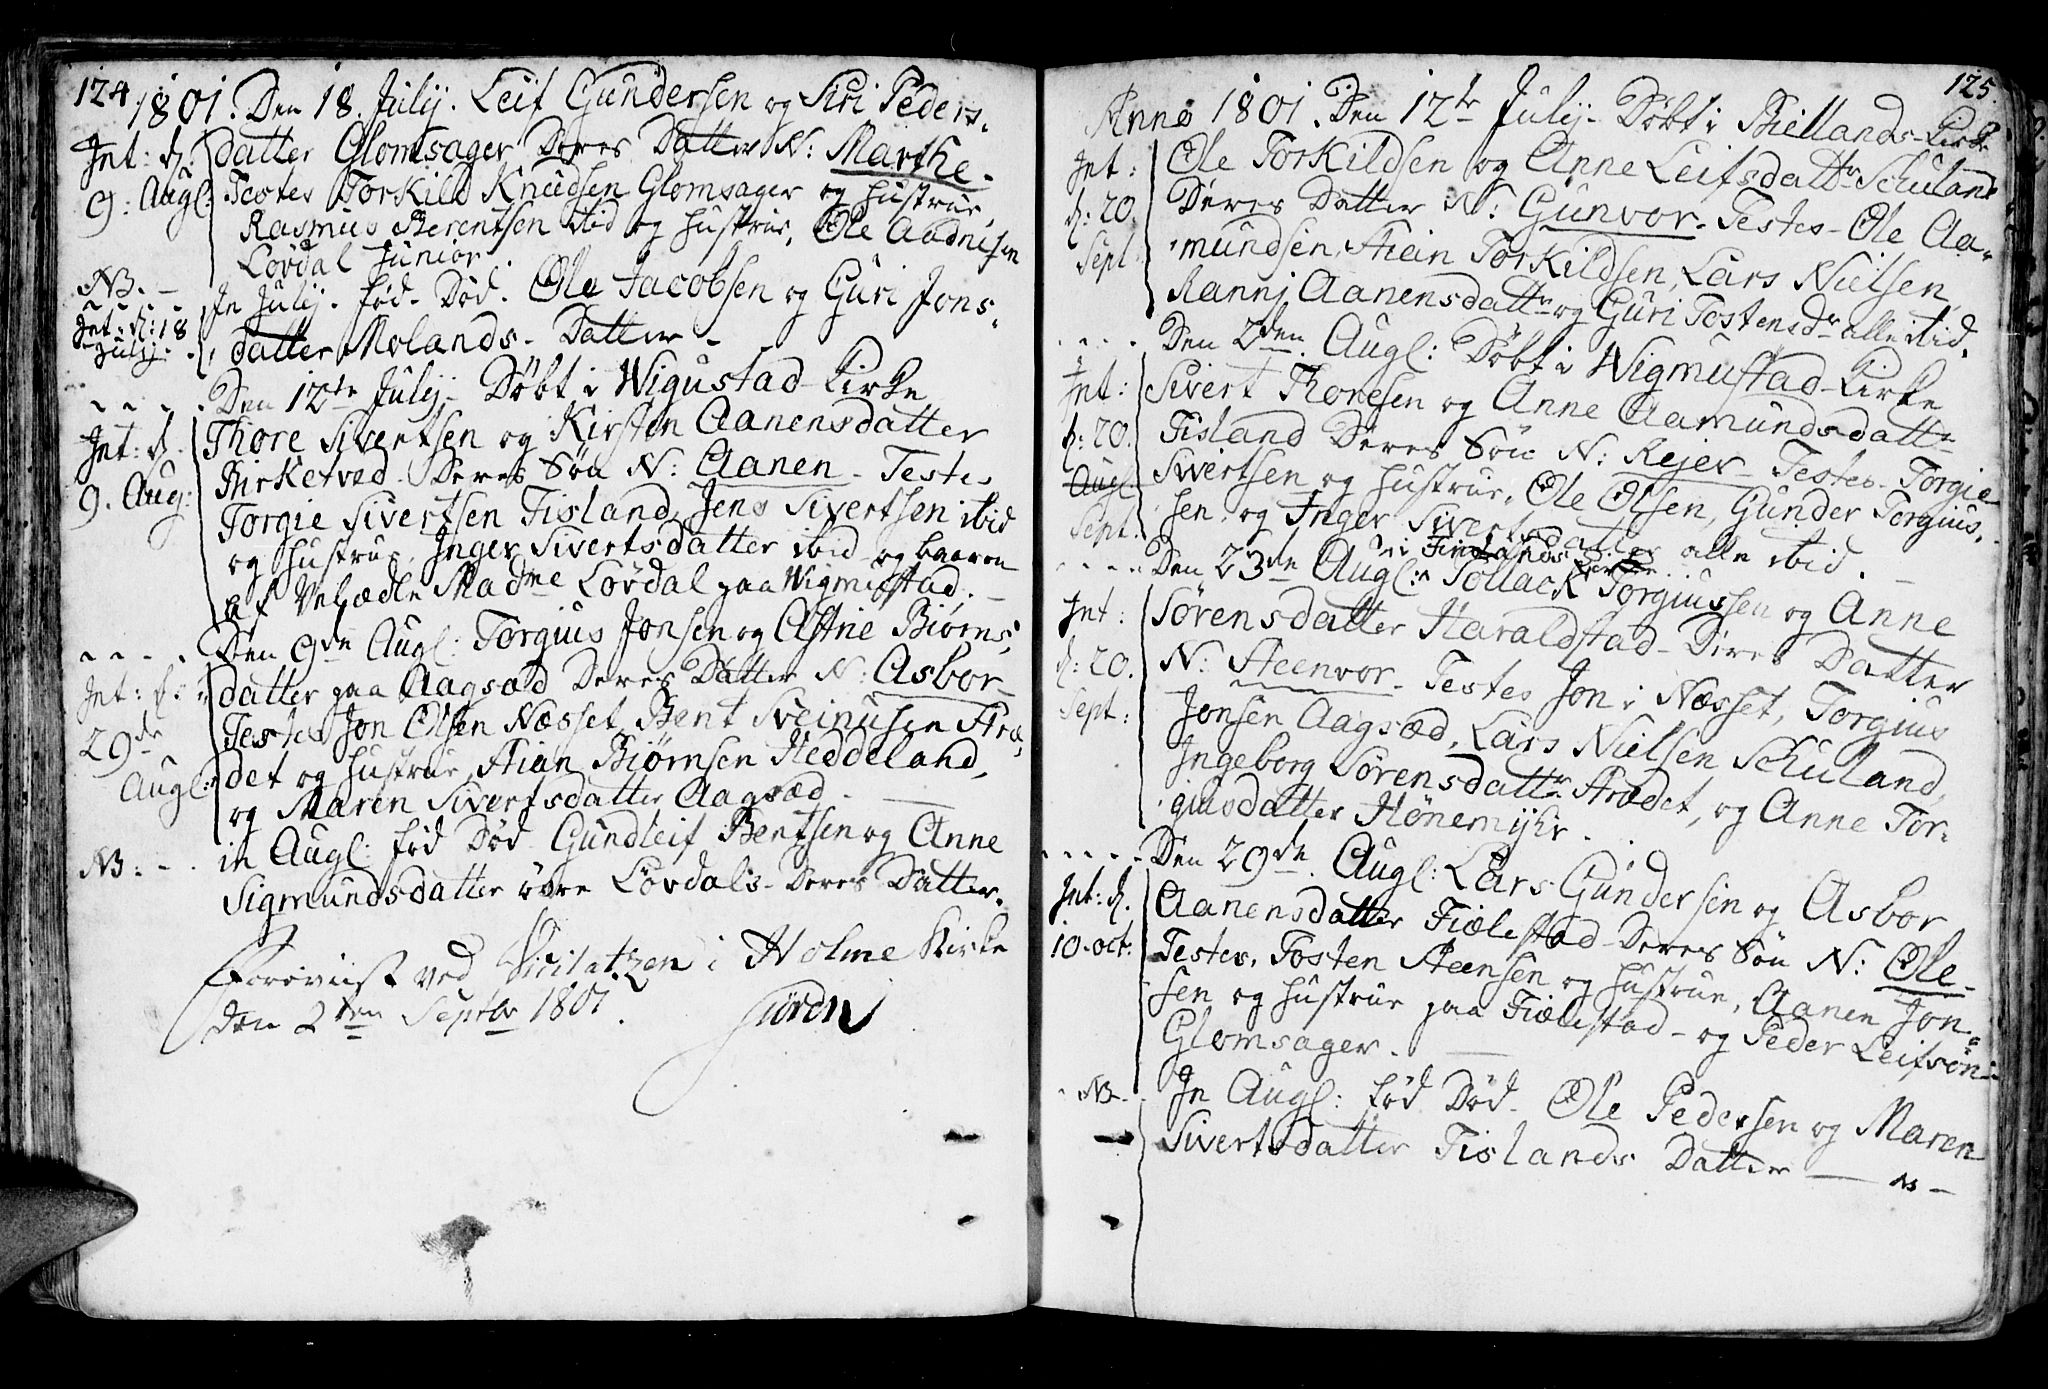 124
1801. Den 18. Julij. Leif Gundersen og Siri Peders-
Int: d. datter Glomsager Deres Datter N: Marthe-
9: Augl: Testes Torkild Knudsen Glomsager og Hustrue,
Rasmus Berentsen ibid og Hustrue, Ole Aadnesen
Lövdal Junior.
NB. - In Julij. fød-Død. Ole Jacobsen og Guri Jons-
Int: d: 18 Julij. datter Molands- Datter -
Den 12te Julij- Döbt i Wigustad-Kirke
Int: d. Thore Sivertsen og Kirsten Aanensdatter
Birketved- Deres Sön N: Aanen- Testes
9. Aug: Torgie Sivertsen Tisland, Jens Sivertsen ibid
og Hustrue, Inger Sivertsdatter ibid- og baaren
af Velædle Madme Lövdal paa Wigmustad. -
Den 9de Augl: Torgius Jonsen og Astrie Biørns-
Int: d: datter paa Aagsæd Deres Datter N: Asbor-
29de Testes Jon Olsen Næsset, Bent Sveinusen Stræ-
Augl: det og Hustrue, Stian Biørnsen Heddeland,
og Maren Sivertsdatter Aagsæd. -
NB: - in Augl: fød Død Gundleif Bentsen og Anne
Sigmundsdatter övre Lövdals- Deres Datter.
Foreviist ved Visitatzen i Holme Kirke
den 2den Septbr 1801.
125.
Anno 1801. Den 12te Julij- Döbt i Biellands-Kirke
Int: Ole Torkildsen og Anne Leifsdattr Schuland
d: 20. Deres Datter N: Gunvor- Testes- Ole Aa-
Sept mundsen, Stein Torkildsen, Lars Nielsen,
Ranni Aanensdattr og Guri Tostensdr alle ibid.
Den 2den Augl: Döbt i Wigmustad-Kirke
Int: Sivert Thoresen og Anne Aamundsdattr
d: 20. Tisland Deres Sön N: Rejer- Testes- Torgie
Augl Sivertsen og Hustrue, Ole Olsen, Gunder Torgius-
Sept. sen, og Inger Sivertsdatter alle ibid. -
i Finlands Kirke
Den 23de Augl: Tollack Torgiussen og Anne
Int: Sørensdatter Haraldstad- Deres Datter
d: 20. N: Steenvor- Testes Jon i Næsset, Torgius
Sept: Jonsen Aagsæd, Lars Nielsen Schuland,
Ingeborg Sörensdattr Strædet, og Anne Tor-
giusdatter Hönemyhr.
Den 29de Augl: Lars Gundersen og Asbor
Int: d. Aanensdatter Fiælestad- Deres Sön N: Ole-
10. oct: Testes, Tosten Steensen og Hustrue, Aanen Jon-
sen og Hustrue paa Fiælestad- og Peder Leifsön
Glomsager. -
NB- In Augl: fød Død- Ole Pedersen og Maren
Sivertsdatter Tislands Datter -